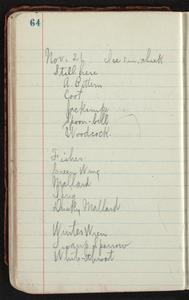 64
Nov. 2
Still here
A. Bittern
Coot
Jacksnipe
Spoon-bill
Woodcock.
Fishes
Green Wing
Mallard
Dusky Mallard
Winter Wren
Swamp Sparrow
White-throat